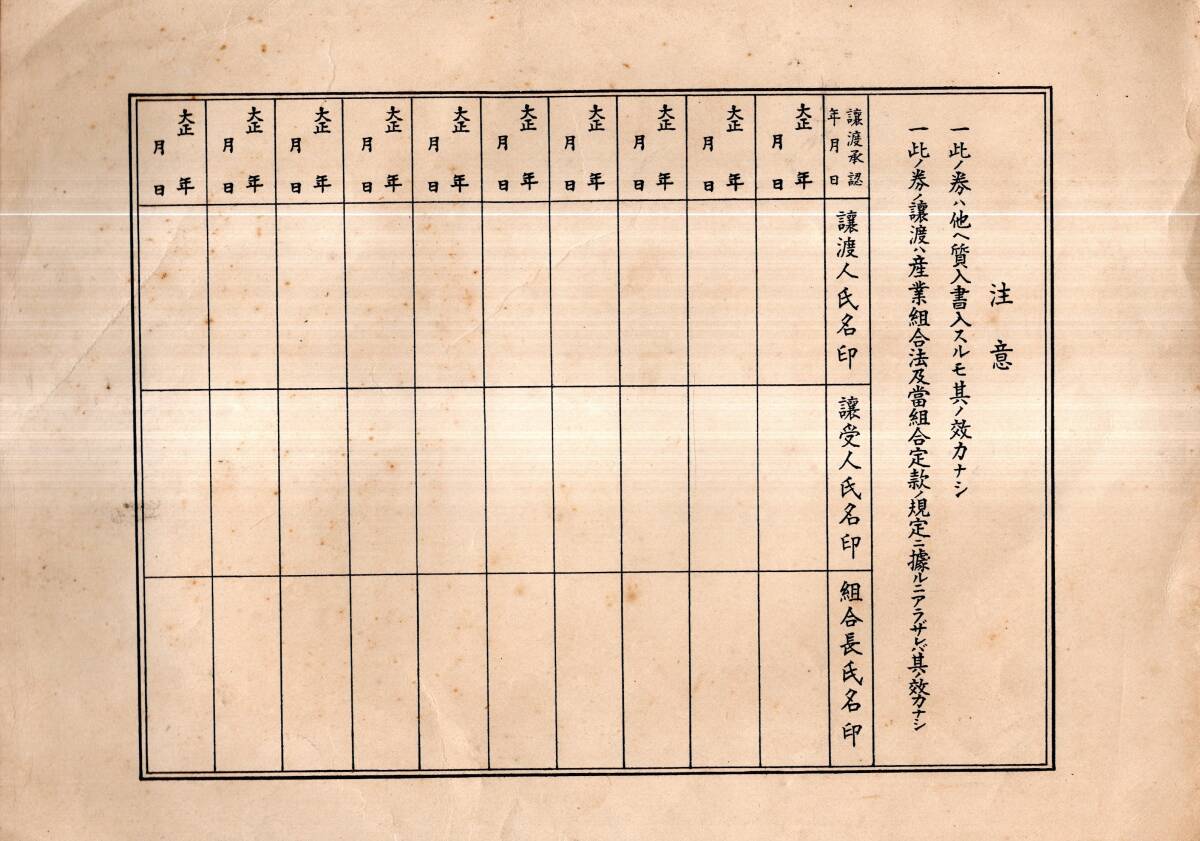 注意
一此ノ券ハ他ヘ質入書入スルモ其ノ效力ナシ
一此ノ券ノ讓渡ハ産業組合法及當組合定款ノ規定ニ據ルニアラザレバ其ノ效力ナシ
讓渡承認
年月日
讓渡人氏名印
讓受人氏名印
組合長氏名印
大正 年
月 日
大正 年
月 日
大正 年
月 日
大正 年
月 日
大正 年
月 日
大正 年
月 日
大正 年
月 日
大正 年
月 日
大正 年
月 日
大正 年
月 日